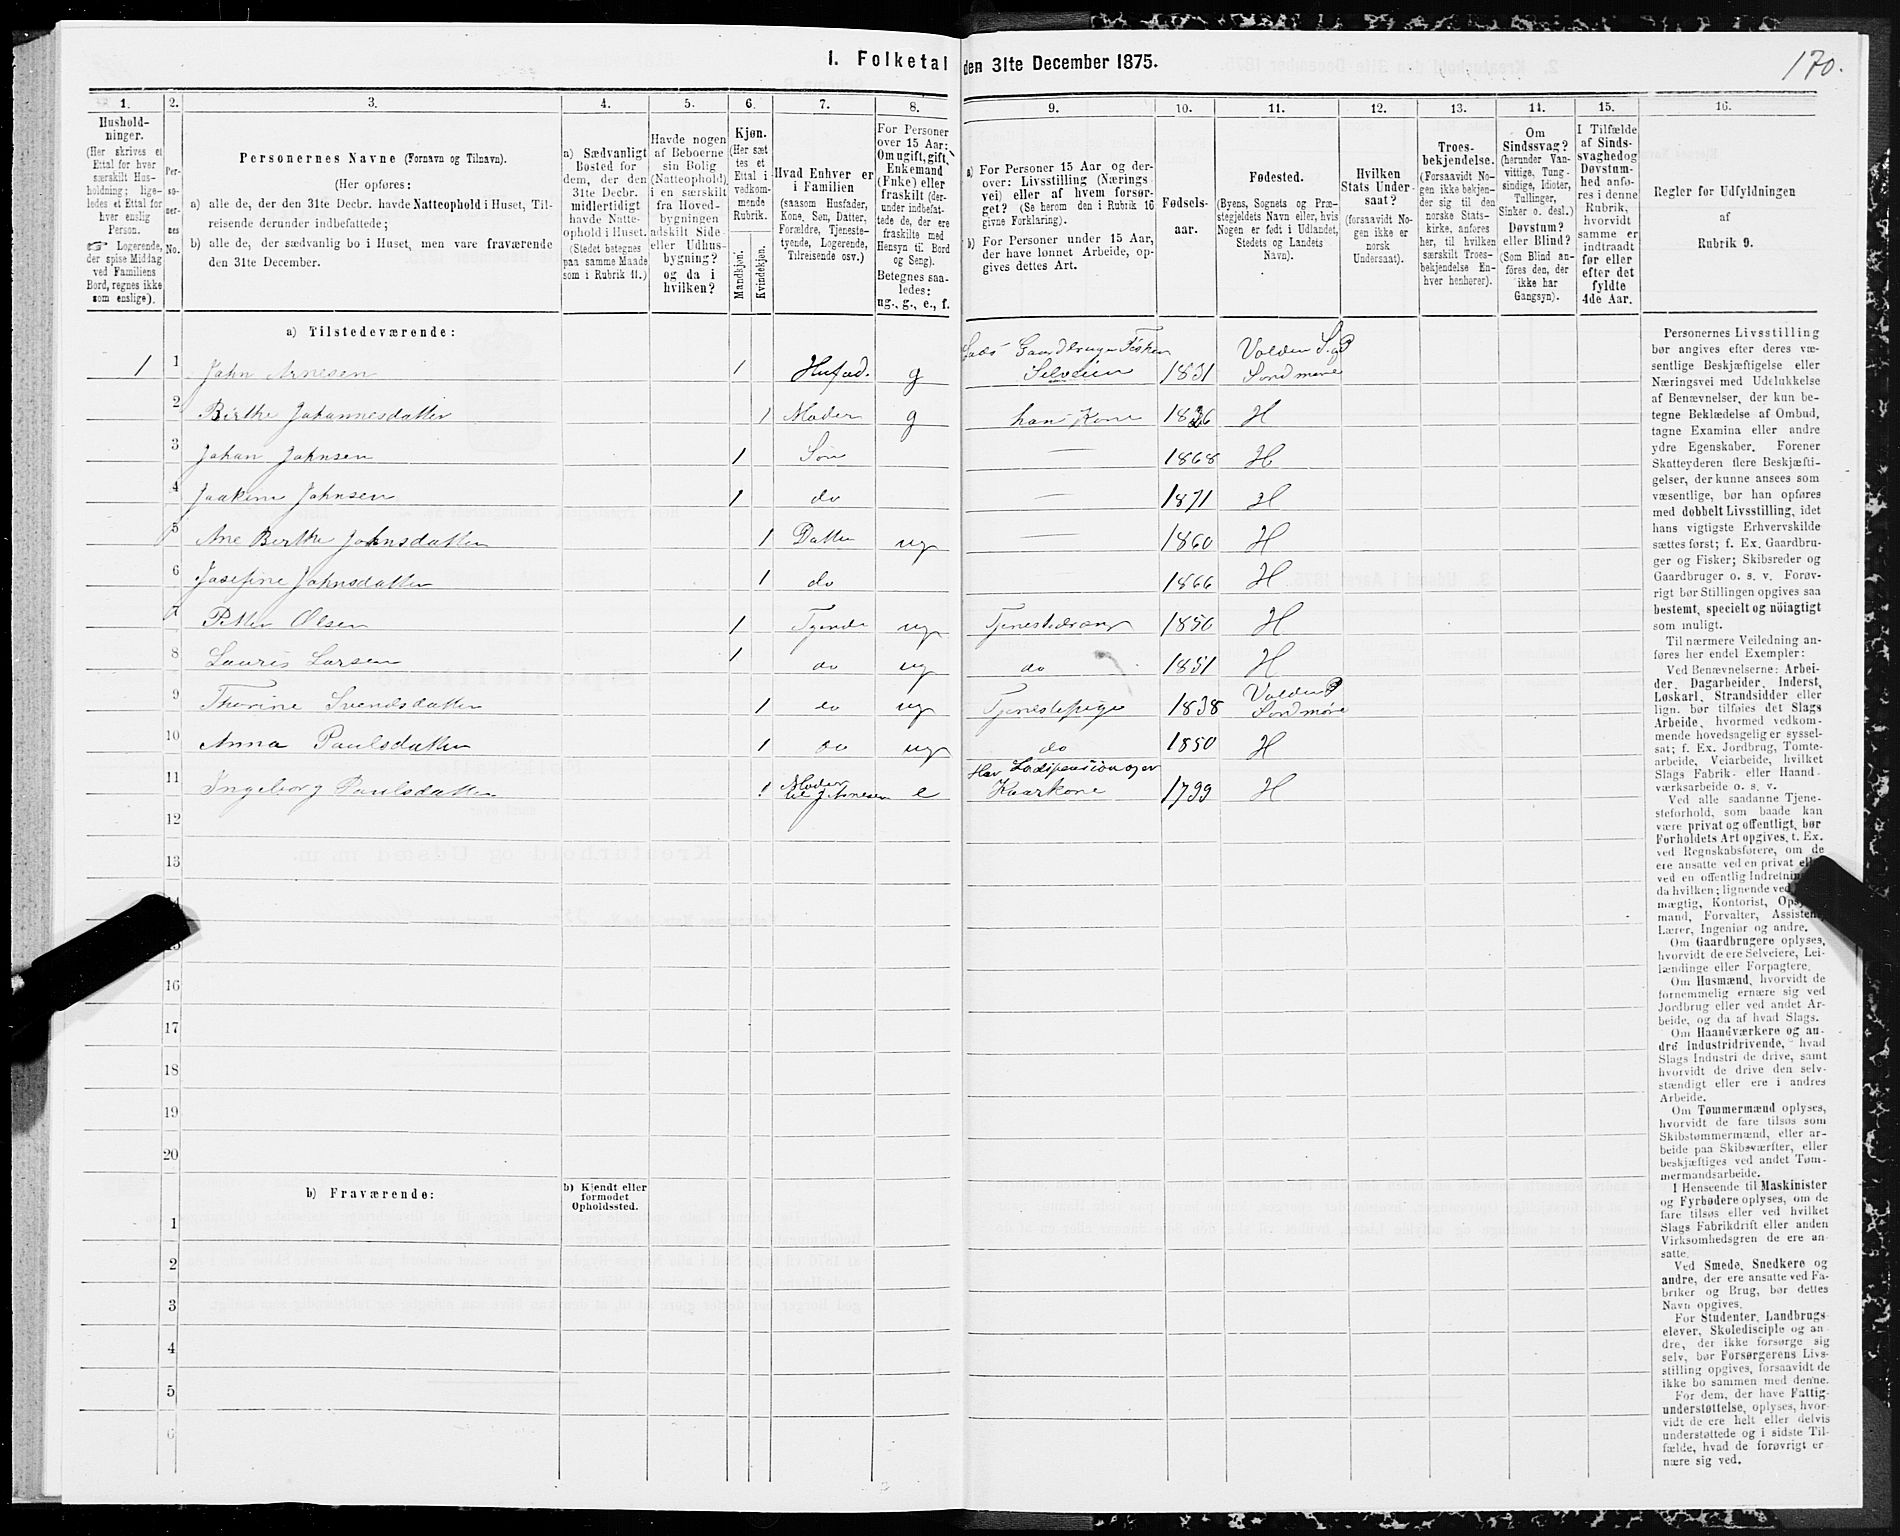 170.
I. Folketal den 31te December 1875.
1. 2. 3. 4. 5. 6. 7. 8. 9. 10. 11. 12. 13. 14. 15. 16.
Hushold-
ninger.
(Her skrives et
Ettal for hver
særskilt Hus-
holdning; lige-
ledes et Ettal for
hver enslig
Person.
☞ Logerende,
der spise Middag
ved Familiens
Bord, regnes ikke
som enslige).
Per-
so-
ner-
nes
No.
Personernes Navne (Fornavn og Tilnavn).
(Her opføres:
a) alle de, der den 31te Decbr. havde Natteophold i Huset, Til-
reisende derunder indbefattede;
b) alle de, der sædvanlig bo i Huset, men vare fraværende
den 31te December.
a) Sædvanligt
Bosted for
dem, der den
31te Decbr.
midlertidigt
havde Natte-
ophold i Huset.
(Stedet betegnes
paa samme Maade
som i Rubrik 11.)
Havde nogen
af Beboerne
sin Bolig
(Natteophold)
i en særskilt
fra Hoved-
bygningen
adskilt Side-
eller Udhus-
bygning?
og da i
hvilken?
Kjøn.
(Her sæt
tes et
Ettal i
vedkom-
mende
Rubrik.
Mandkjøn.
Kvindekjøn.
Hvad Enhver er
i Familien
(saasom Husfader,
Kone, Søn, Datter,
Forældre, Tjeneste-
tyende, Logerende,
Tilreisende osv.)
For Personer
over 15 Aar:
Om ugift, gift,
Enkemand
(Enke) eller
fraskilt (der-
under indbefat-
tede de, der ere
fraskilte med
Hensyn til Bord
og Seng).
Betegnes saa-
ledes:
ug., g., e., f.
a) For Personer 15 Aar og der-
over: Livsstilling (Nærings-
vei) eller af hvem forsør-
get? (Se herom den i Rubrik 16
givne Forklaring).
b) For Personer under 15 Aar,
der have lønnet Arbeide, op-
gives dettes Art.
Fødsels-
aar.
Fødested.
(Byens, Sognets og Præ-
stegjeldets Navn eller, hvis
Nogen er født i Udlandet,
Stedets og Landets
Navn).
Hvilken
Stats Under-
saat?
(forsaavidt No-
gen ikke er
norsk
Undersaat).
Troes-
bekjendelse.
(Forsaavidt No-
gen ikke bekjen-
der sig til den
norske Stats-
kirke, anføres
her, til hvilken
særskilt Troes-
bekjendelse En-
hver henhører).
Om
Sindssvag?
(herunder Van-
vittige, Tung-
sindige, Idioter,
Tullinger,
Sinker o. desl.)
Døvstum?
eller Blind?
(Som Blind an-
føres den, der
ikke har
Gangsyn).
I Tilfælde
af Sinds-
svaghedog
Døvstum-
hed anfø-
res i denne
Rubrik,
hvorvidt
samme er
indtraadt
før eller
efter det
fyldte
4de Aar.
Regler for Udfyldningen
af
Rubrik 9.
a) Tilstedeværende:
1 1 John Arnesen 1 Husfad. g Gaardbruger Fisker Selveier 1831 Volden S. P Søndmøre
2 Birthe Johannesdatter 1 Moder g hans Kone 1826 H
3 Johan Johnsen 1 Søn — 1868 H
4 Joakim Johnsen 1 do — 1871 H
5 Ane Berthe Johnsdatter 1 Datter ug — 1860 H
6 Josefine Johnsdatter 1 do 1866 H
7 Petter Olsen 1 Tyende ug Tjenestedreng 1850 H
8 Lauris Larsen 1 do ug do 1851 H
9 Thorine Svendsdatter 1 do ug Tjenestepige 1838 Volden P Søndmøre
10 Anna Paulsdatter 1 do ug do 1850 H
11 Ingeborg Paulsdatter 1 Moder til J Arnesen e Kaarkone 1799 H
12
13
15
16
17
18
19
20
b) Fraværende:
b) Kjendt eller
formodet
Opholdssted.
1
2
3
4
5
6
Personernes Livsstilling
bør angives efter deres væ-
sentlige Beskjæftigelse eller
Næringsvei med Udelukkelse
af Benævnelser, der kun be-
tegne Beklædelse af Ombud,
tagne Examina eller andre
ydre Egenskaber. Forener
Skatteyderen flere Beskjæfti-
gelser, der kunne ansees som
væsentlige, bør han opføres
med dobbelt Livsstilling, idet
hans vigtigste Erhvervskilde
sættes først; f. Ex. Gaardbru-
ger og Fisker; Skibsreder og
Gaardbruger o. s. v. Forøv-
rigt bør Stillingen opgives saa
bestemt, specielt og nöiagtigt
som muligt.
Til nærmere Veiledning an-
føres her endel Exempler:
Ved Benævnelserne: Arbei-
der, Dagarbeider, Inderst,
Løskarl, Strandsidder eller
lign. bør tilføies det Slags
Arbeide, hvormed vedkom-
mende hovedsagelig er syssel-
sat; f. Ex. Jordbrug, Tomte-
arbeide, Veiarbeide, hvilket
Slags Fabrik- eller Haand-
værksarbeide o. s. v.
Ved alle saadanne Tjene-
steforhold, som baade kan
være privat og offentligt, bør
Forholdets Art opgives, t. Ex.
ved Regnskabsførere, om de
ere ansatte ved en privat eller
ved en offentlig Indretning og
da hvilken; lignende ved
mægtig, Kontorist, Opsyns-
mand, Forvalter, Assistent,
Lærer, Ingeniør og andre.
Om Gaardbrugere oplyses,
hvorvidt de ere Selveiere, Lei-
lændinge eller Forpagtere.
Om Husmænd, hvorvidt de
fornemmelig ernære sig ved
Jordbrug eller ved andet Ar-
beide, og da af hvad Slags.
Om Haandværkere og an-
dre Industridrivende, hvad
Slags Industri de drive, samt
hvorvidt de drive den selv-
stændigt eller ere i andres
Arbeide.
Om Tømmermænd oplyses,
hvorvidt de fare tilsøs som
Skibstømmermænd, eller ar-
beide paa Skibsværfter, eller
beskjæftiges ved andet Tøm-
mermandsarbeide.
I Henseende til Maskinister
og Fyrbødere oplyses, om de
fare tilsøs eller ved hvilket
Slags Fabrikdrift eller anden
Virksomhedsgren de ere an-
satte.
Ved Smede, Snedkere og
andre, der ere ansatte ved Fa-
briker og Brug, bør dettes
Navn opgives.
For Studenter, Landbrugs-
elever, Skoledisciple og an-
dre, der ikke forsørge sig
selv, bør Forsørgerens Livs-
stilling opgives, forsaavidt de
ikke bo sammen med denne.
For dem, der have Fattig-
understøttelse, oplyses, hvor-
vidt de ere helt eller delvis
understøttede og i sidste Til-
fælde, hvad de forøvrigt er-
nære sig ved.